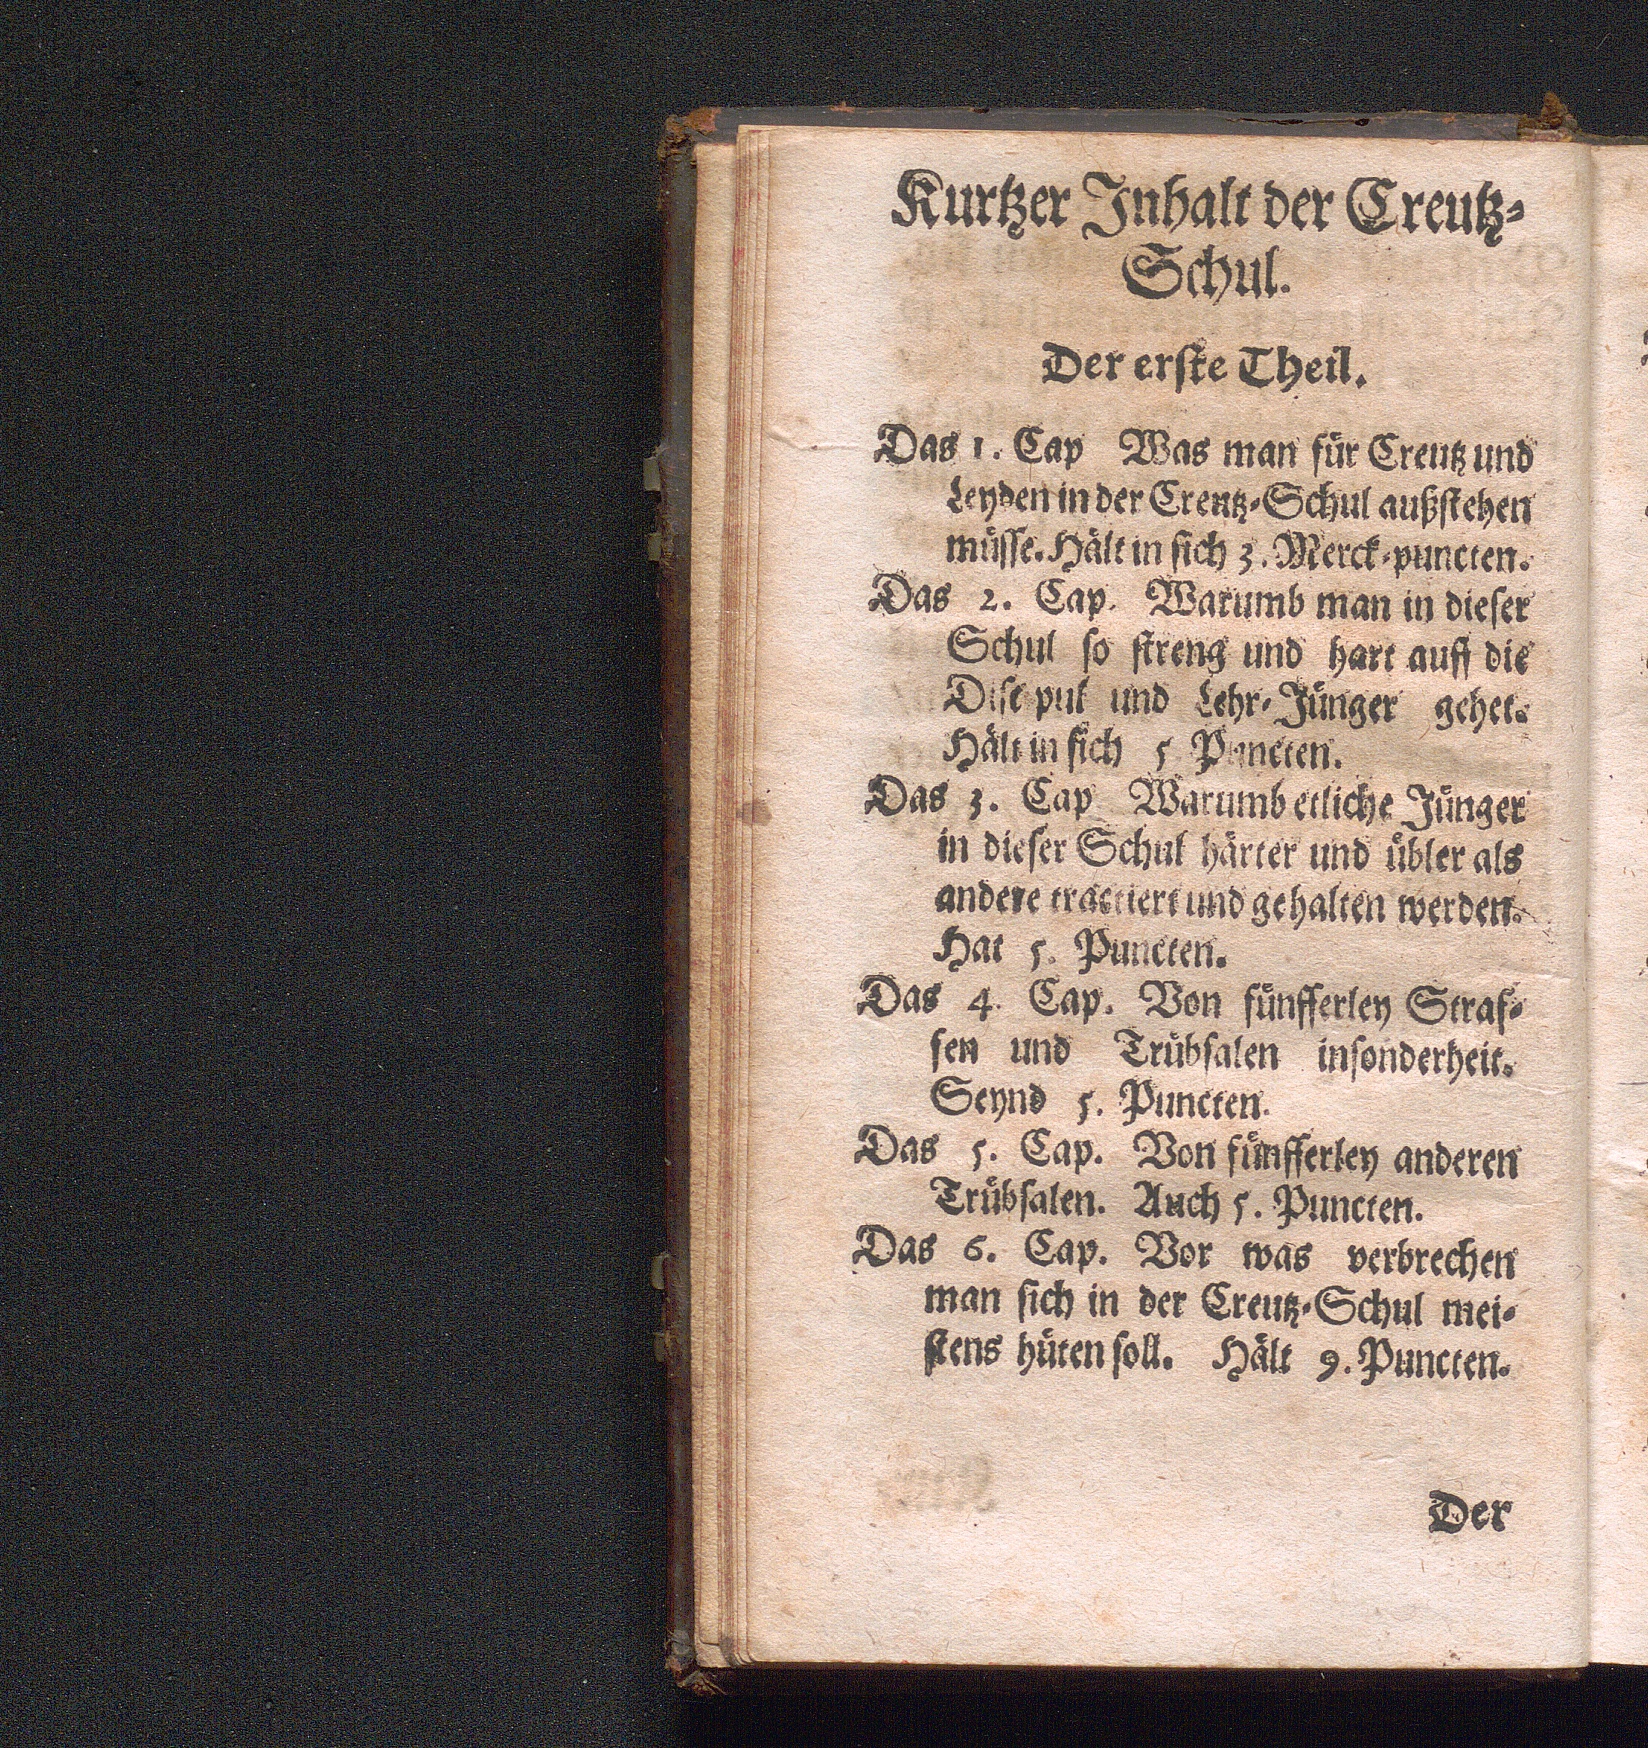 Kurtzer Inhalt der Creutz-
Schul.
Der erste Theil.
Das 1. Cap Was man für Creutz und
Leyden in der Creutz-Schul außstehen
müsse. Hält in sich 3. Merck-puncten.
Das 2. Cap. Warumb man in dieser
Schul so streng und hart auff die
Discipul und Lehr-Jünger gehet.
Hält in sich 5 Puncten.
Das 3. Cap Warumb etliche Jünger
in dieser Schul härter und übler als
andere tractiert und gehalten werden.
Hat 5. Puncten.
Das 4. Cap. Von fünfferley Straf-
fen und Trübsalen insonderheit.
Seynd 5. Puncten.
Das 5. Cap. Von fünfferley anderen
Trübsalen. Auch 5. Puncten.
Das 6. Cap. Vor was verbrechen
man sich in der Creutz-Schul mei-
stens hüten soll. Hält 9. Puncten.
Der